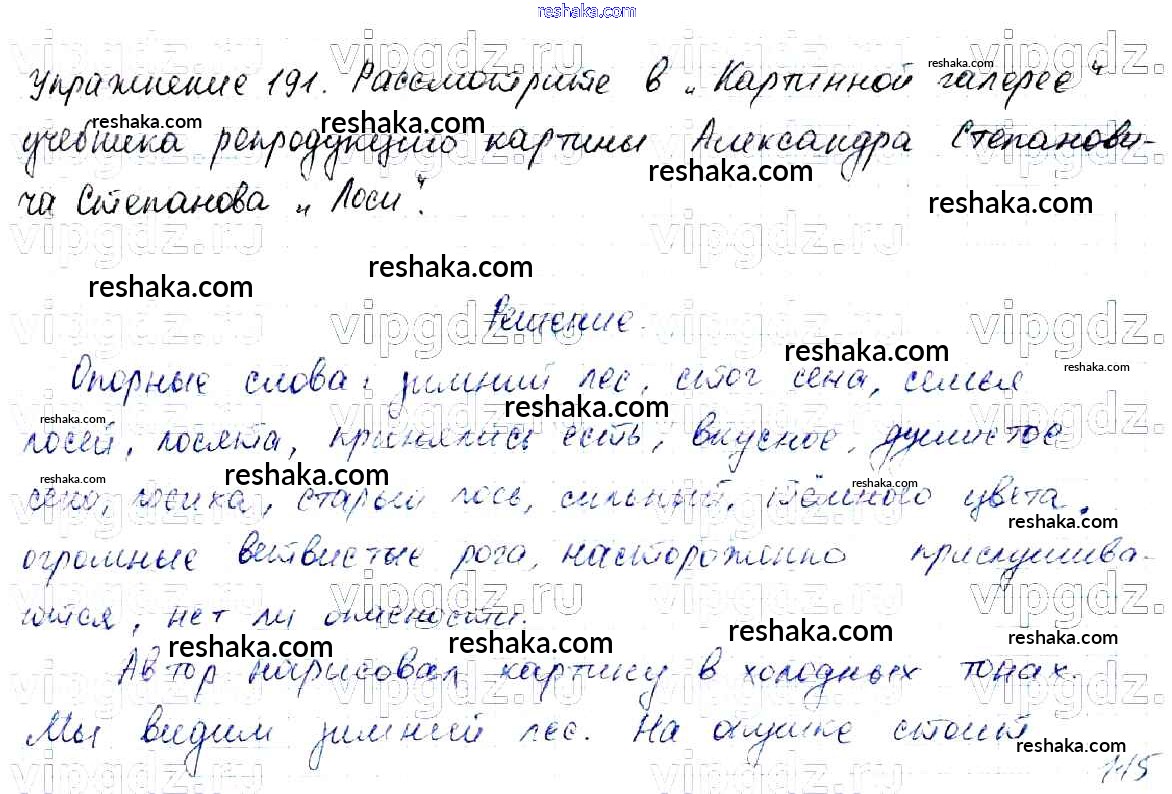 reshaka.com
Упражнение 191. Рассмотрите в „Картинной галерее“
учебника репродукцию картины Александра Степанови-
ча Степанова „Лоси“.
Решение.
Опорные слова: зимний лес, стог сена, семья
лосей, лосята, принялись есть, вкусное, душистое
сено, лосиха, старый лось, сильный, тёмного цвета,
огромные ветвистые рога, настороженно прислушива-
ются, нет ли опасности.
Автор нарисовал картину в холодных тонах.
Мы видим зимний лес. На опушке стоит
115